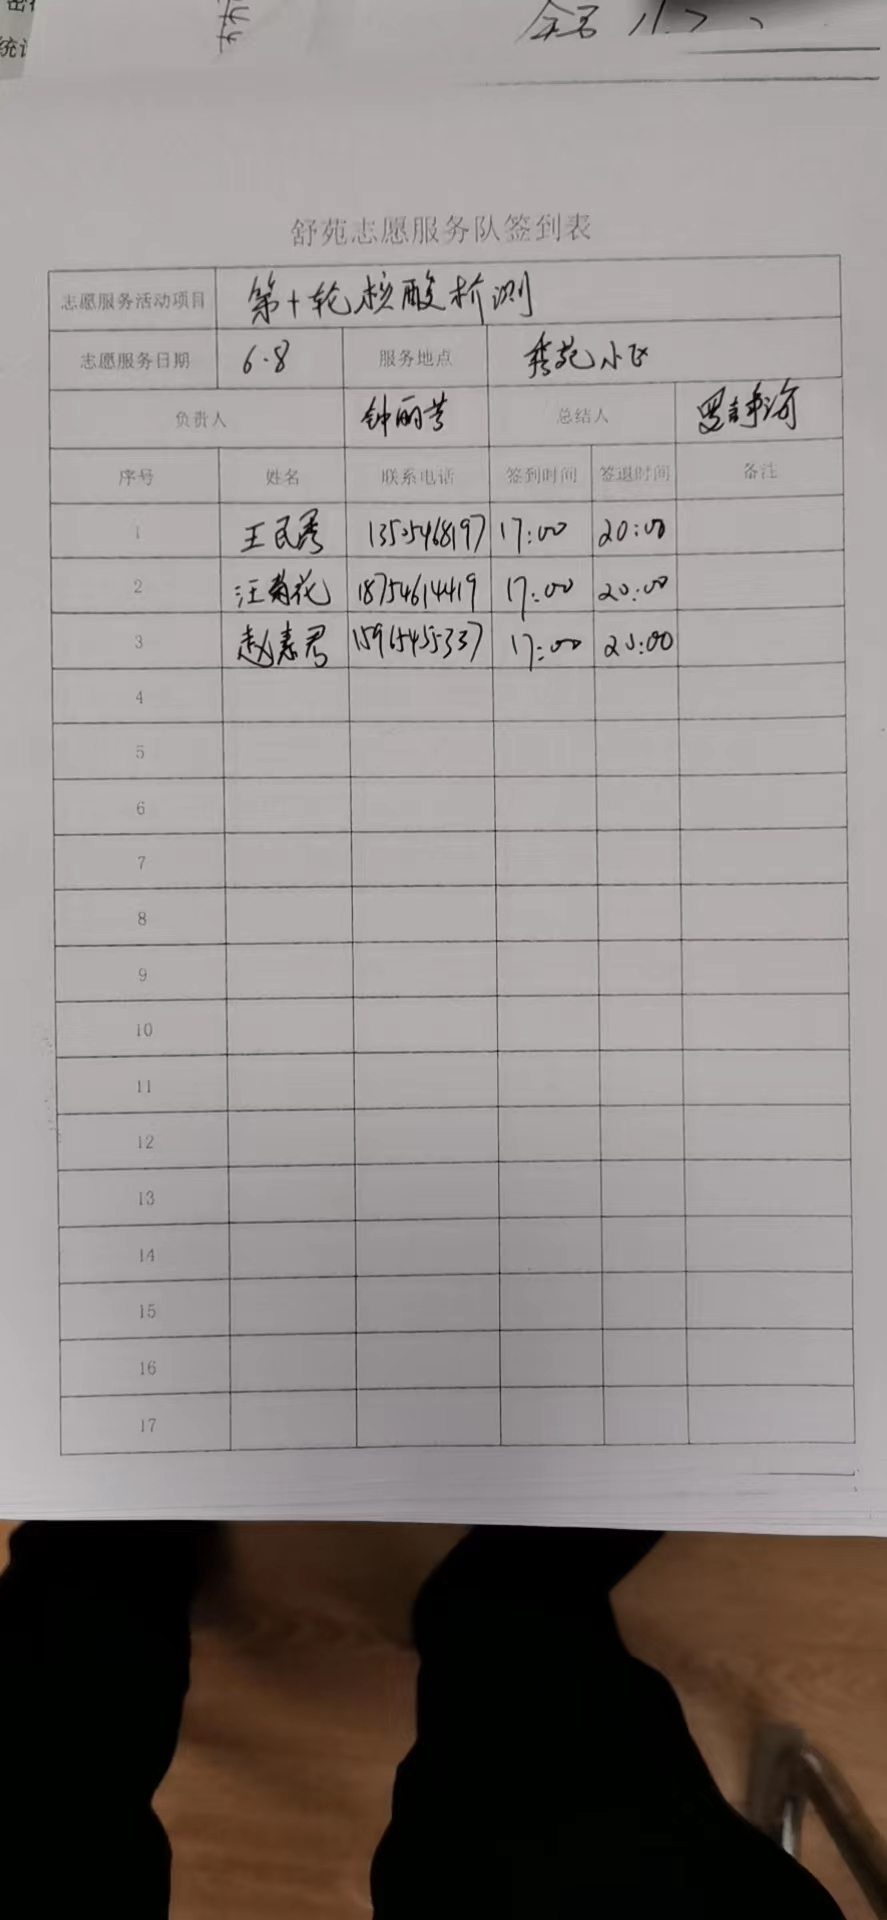 舒苑志愿服务队签到表
志愿服务活动项目 第十轮核酸检测
志愿服务日期 6.8 服务地点 秀苑小区
负责人 钟丽芳 总结人
序号 姓名 联系电话 签到时间 签退时间 备注
1 王民秀 13505468197 17:00 20:00
2 汪菊花 18754614419 17:00 20:00
3 赵素君 15965455337 17:00 20:00
4
5
6
7
8
9
10
11
12
13
14
15
16
17